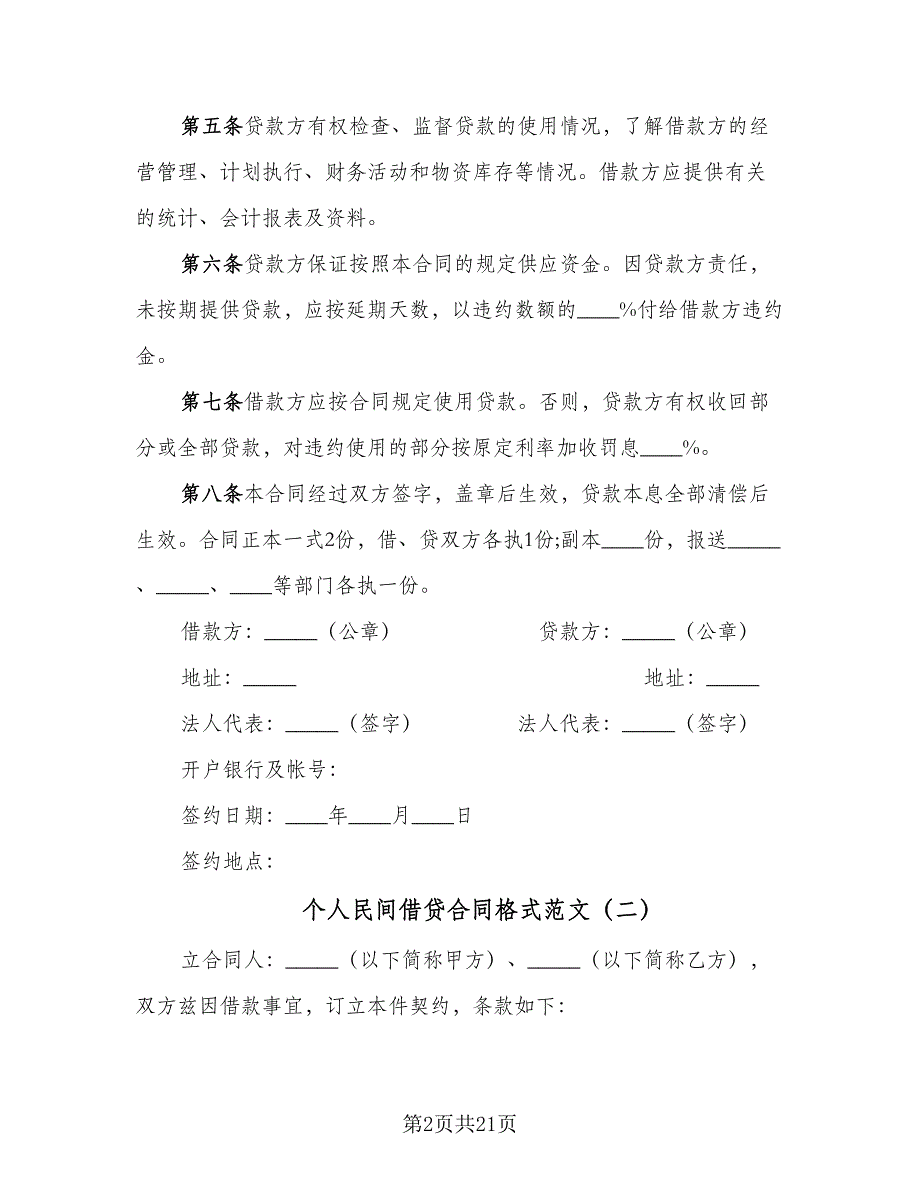 第五条贷款方有权检查、监督贷款的使用情况，了解借款方的经
营管理、计划执行、财务活动和物资库存等情况。借款方应提供有关
的统计、会计报表及资料。
第六条贷款方保证按照本合同的规定供应资金。因贷款方责任，
未按期提供贷款，应按延期天数，以违约数额的____%付给借款方违约
金。
第七条借款方应按合同规定使用贷款。否则，贷款方有权收回部
分或全部贷款，对违约使用的部分按原定利率加收罚息____%。
第八条本合同经过双方签字，盖章后生效，贷款本息全部清偿后
生效。合同正本一式2份，借、贷双方各执1份;副本____份，报送_____
、_____、____等部门各执一份。
借款方：_____（公章） 贷款方：_____（公章）
地址：_____ 地址：_____
法人代表：_____（签字） 法人代表：_____（签字）
开户银行及帐号：
签约日期：____年____月____日
签约地点：
个人民间借贷合同格式范文（二）
立合同人：_____（以下简称甲方）、_____（以下简称乙方），
双方兹因借款事宜，订立本件契约，条款如下：
第2页共21页